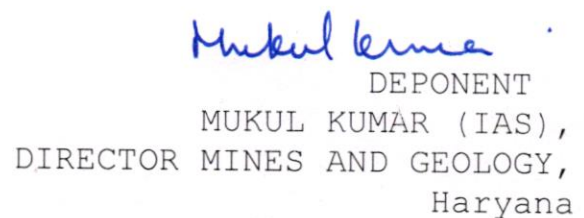 Mukul Kumar
DEPONENT
MUKUL KUMAR (IAS),
DIRECTOR MINES AND GEOLOGY,
Haryana